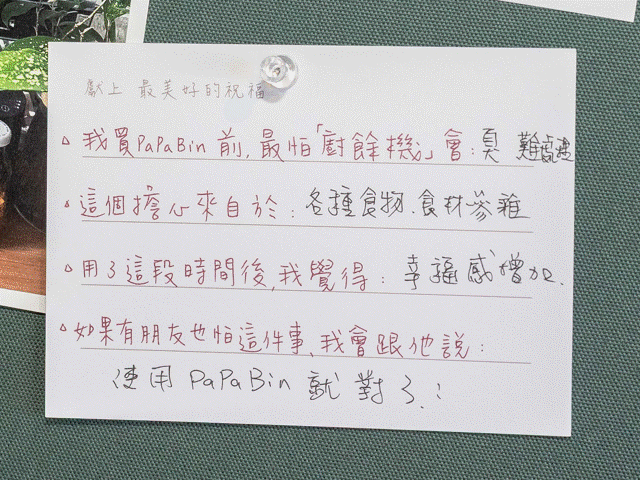 獻上 最美好的祝福
△我買PaPaBin前,最怕「廚餘機」會:臭 難處理
△這個擔心來自於:各種食物.食材參雜
△用了這段時間後,我覺得:幸福感增加.
△如果有朋友也怕這件事,我會跟他說:
使用PaPaBin就對了.!